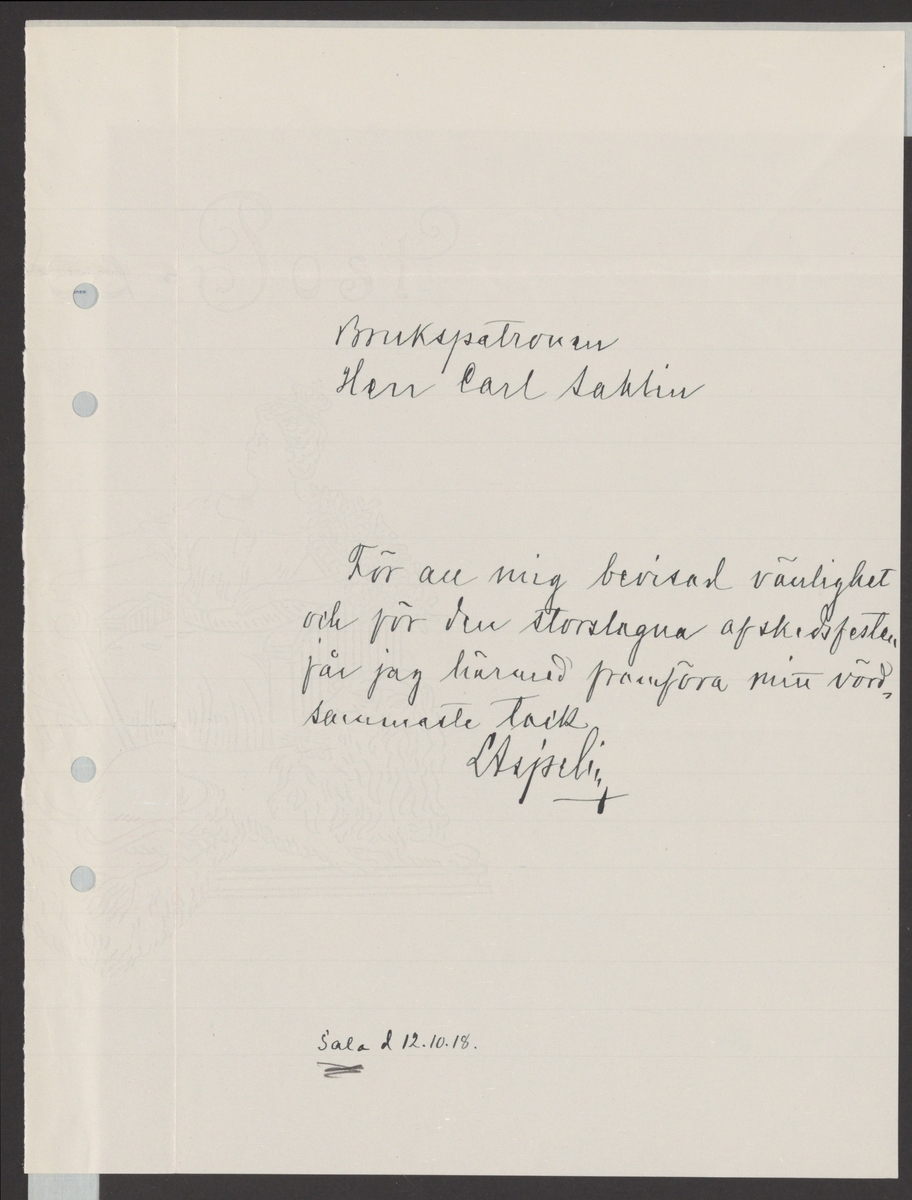 Brukspatronen
Herr Carl Sahlin
För all mig bevisad vänlighet
och för den storslagna afskedsfesten
får jag härmed framföra mitt vörd-
sammaste tack
LAspelin
Sala d 12.10.18.